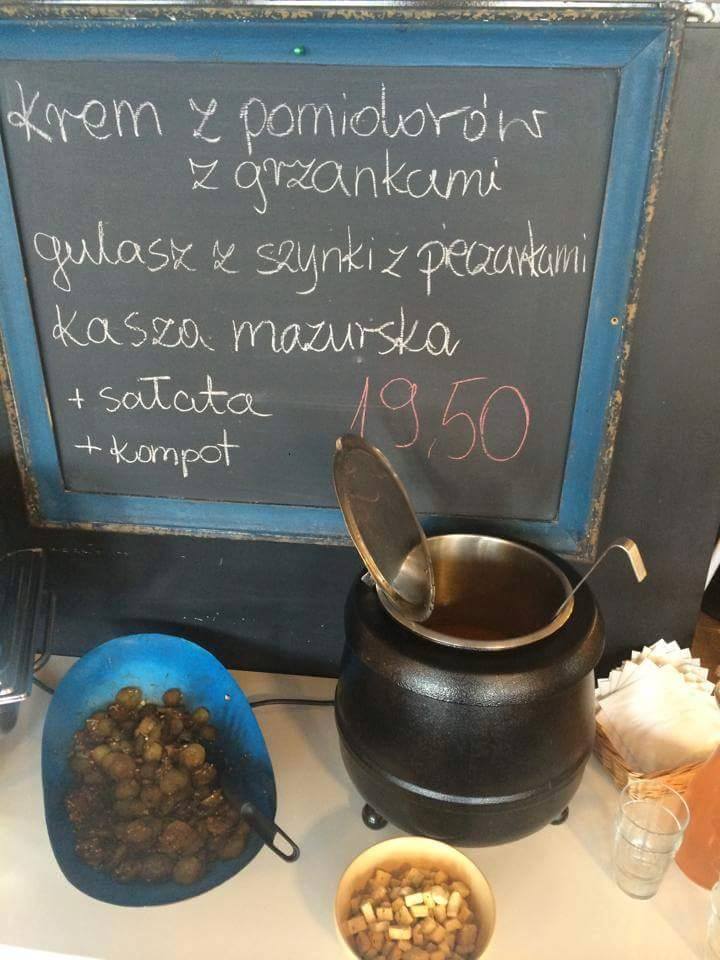 Krem z pomidorów
z grzankami
gulasz z szynki z pieczarkami
kasza mazurska
+ sałata 19,50
+ kompot